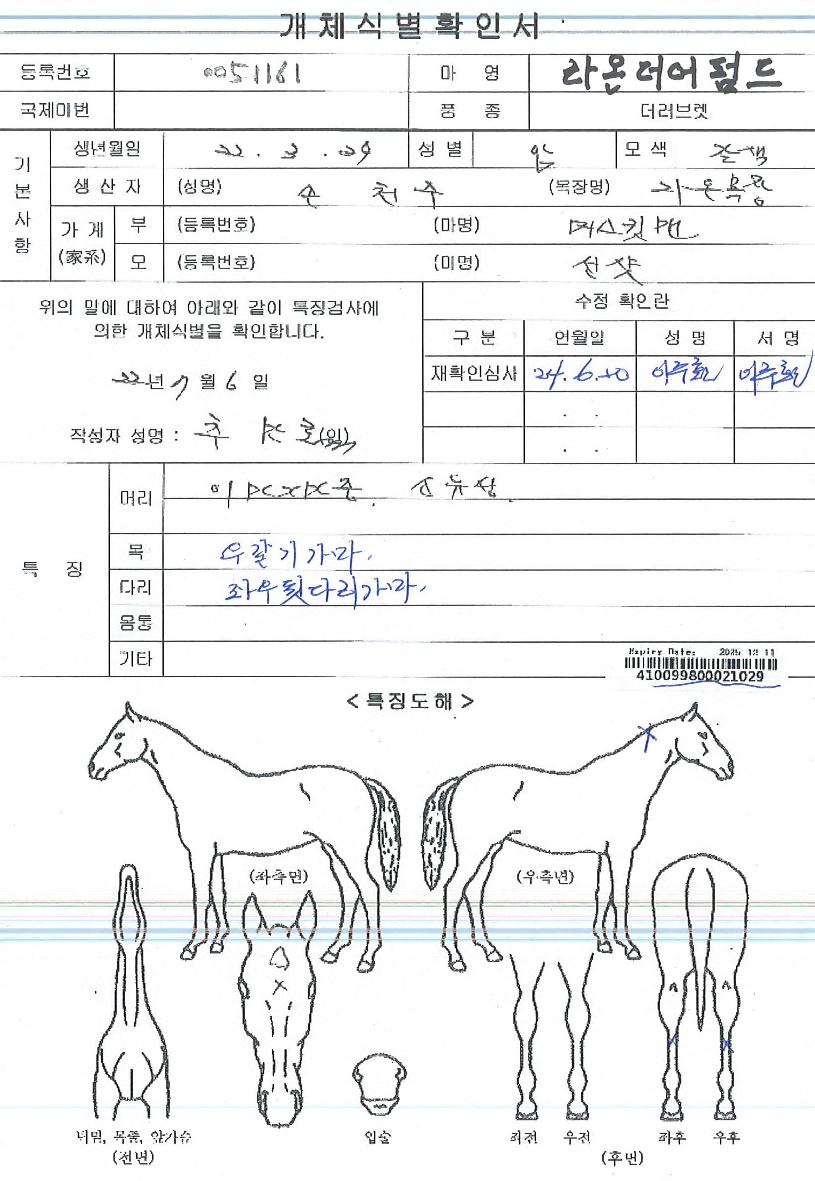 개체식별확인서
등록번호 0051161 마 명 라온더어펌드
국제마번 품 종 더러브렛
기본사항
생년월일 22. 3. 29 성별 암 모색 갈색
생산자 (성명) 손 천 수 (목장명) 라온목장
가계 (家系) 부 (등록번호) (마명) 머스킷맨
모 (등록번호) (마명) 선샷
위의 말에 대하여 아래와 같이 특징검사에
의한 개체식별을 확인합니다.
22년 7월 6일
작성자 성명 : 추
수정 확인란
구분 연월일 성명 서명
재확인심사 24. 6. 20
. .
. .
특 징
머리
목 우갈기가마.
다리 좌우뒷다리가마.
몸통
기타
Expiry Date: 2025 12 11
410099800021029
< 특징도해 >
(좌측면) (우측면)
턱밑, 목줄, 앞가슴
(전면)
입술
좌전 우전 좌후 우후
(후면)